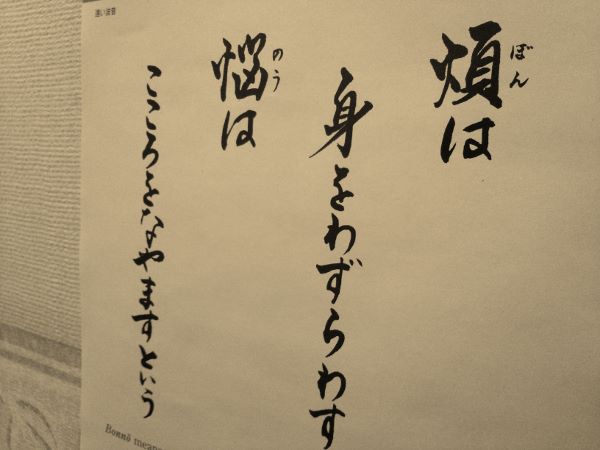 遠い波音
煩は
ぼん
身をわずらわす
悩は
のう
こころをなやますという
Bonnō means